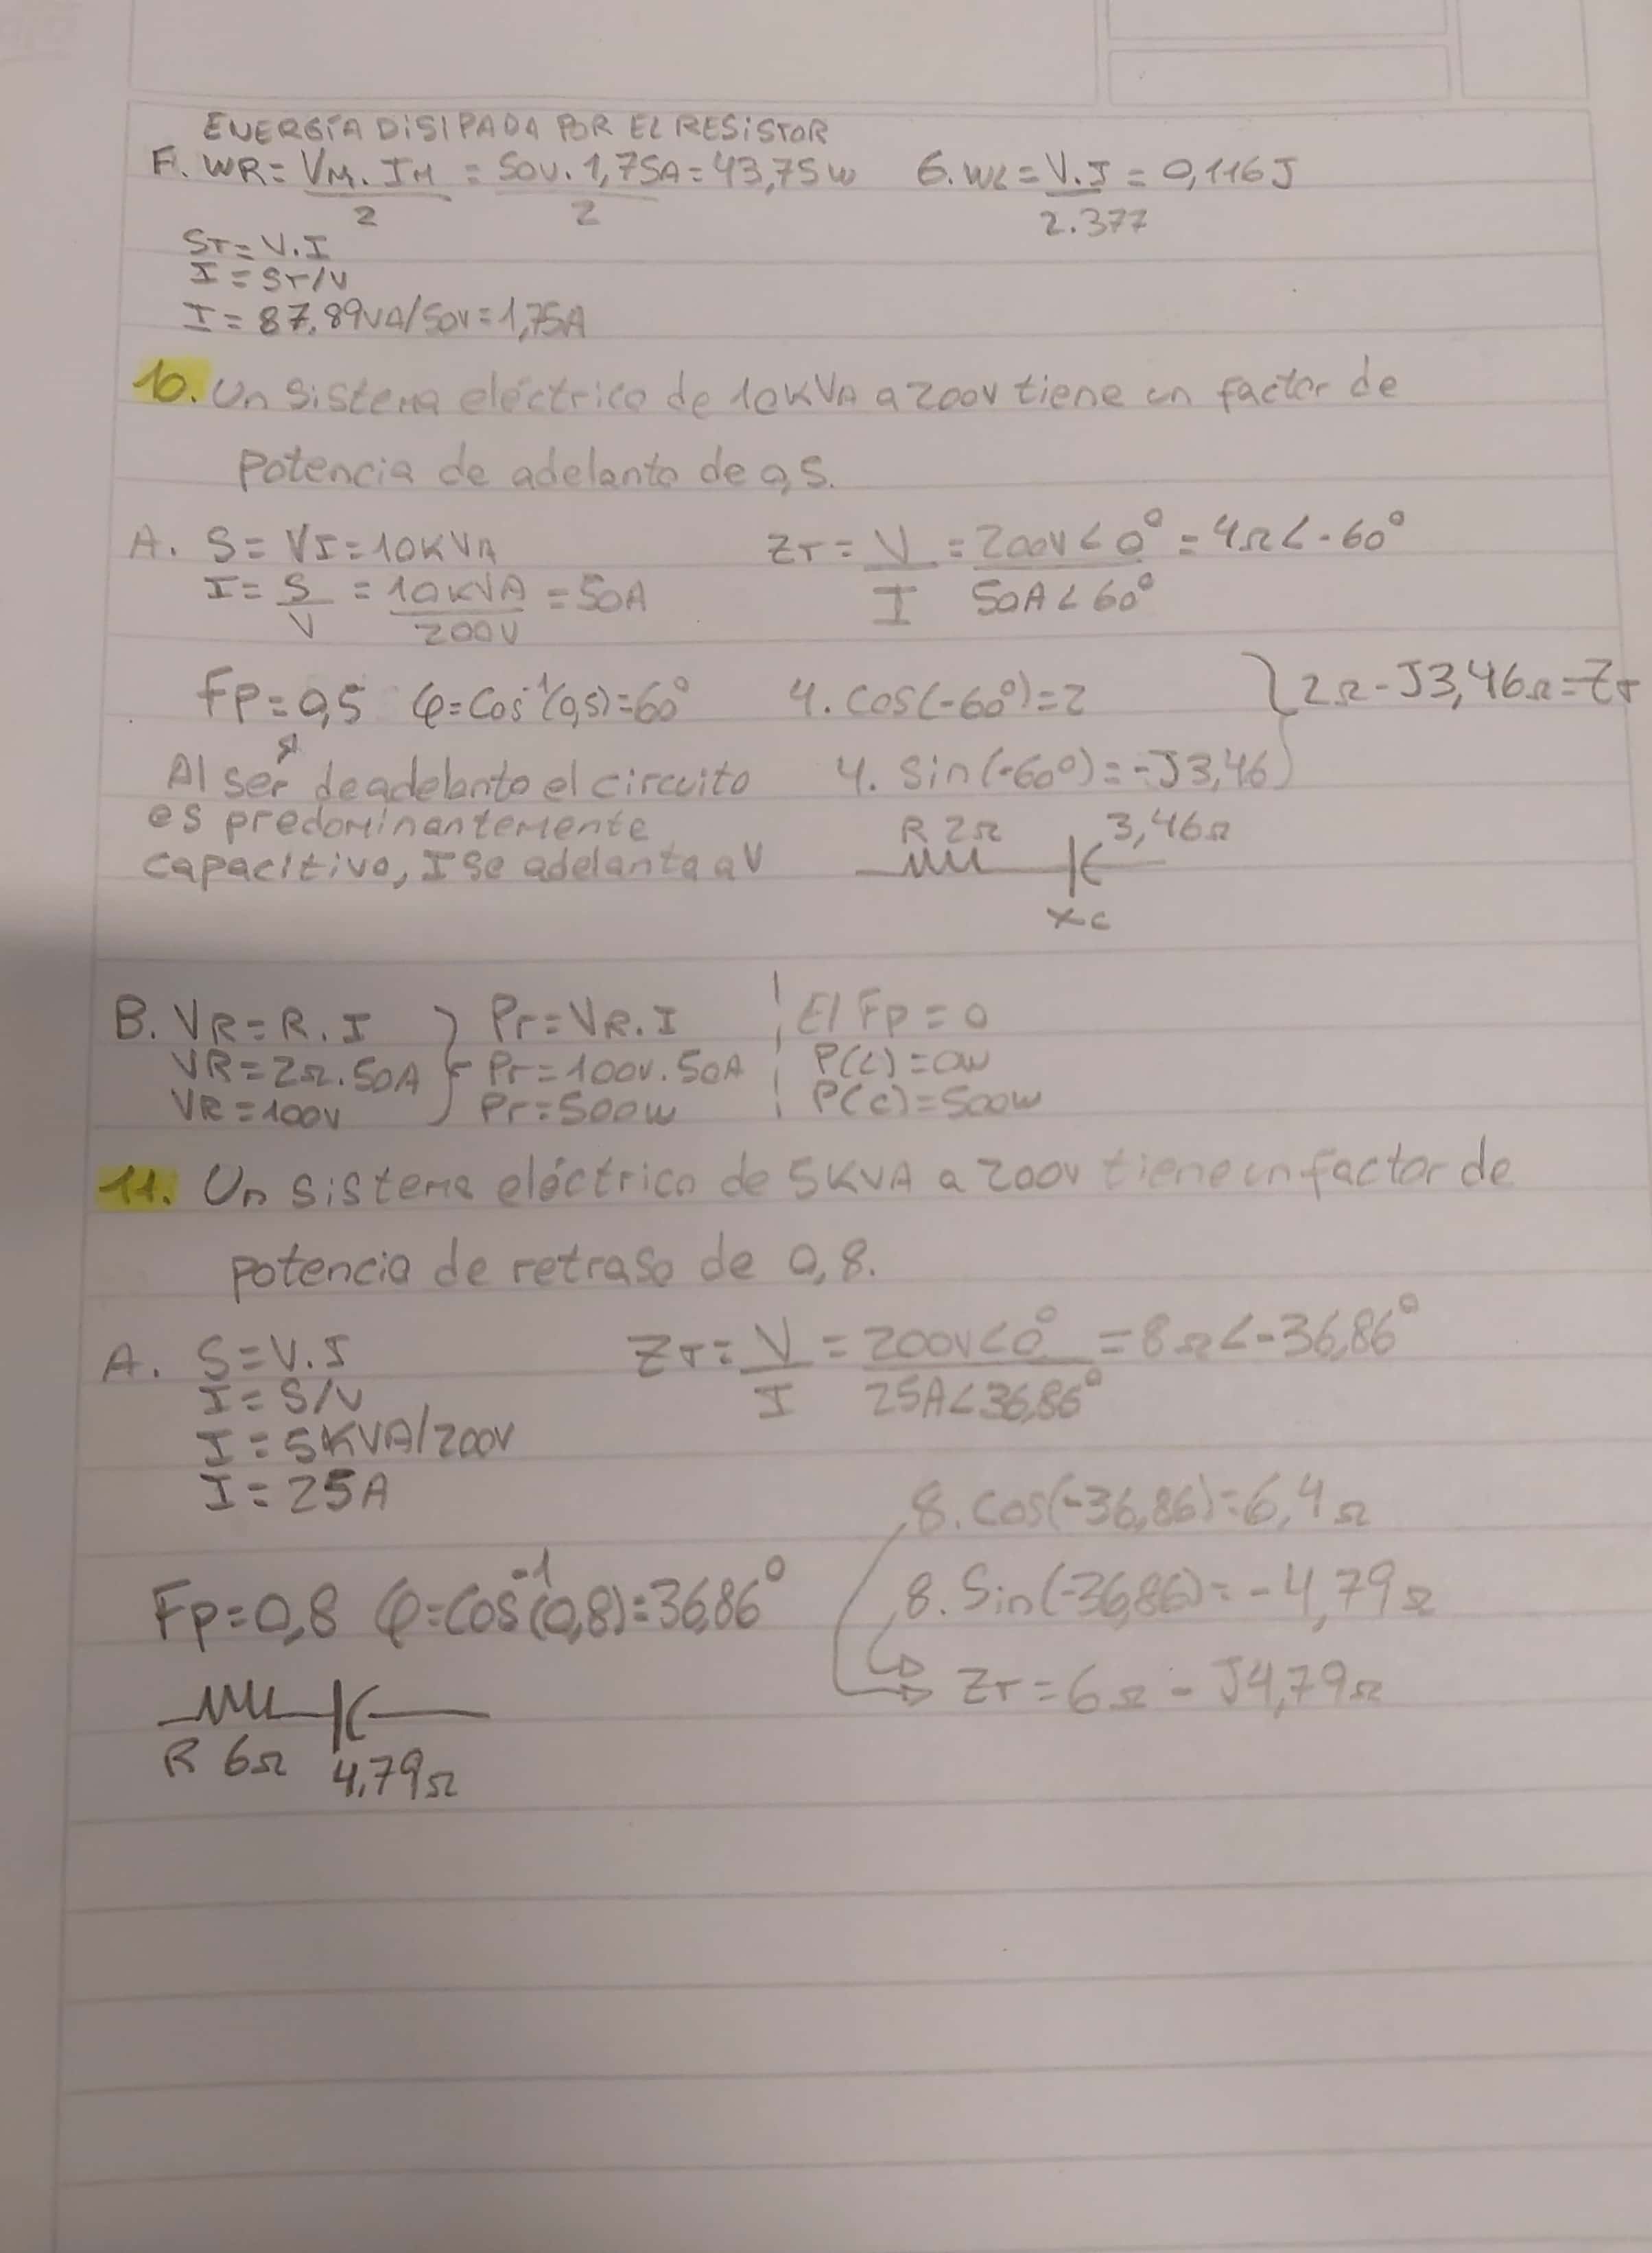 ENERGÍA DISIPADA POR EL RESISTOR
F. WR = VM. IM / 2 = 50V. 1,75A / 2 = 43,75W   G. WL = V.I / 2.377 = 0,116J
ST = V.I
I = ST/V
I = 87,89VA/50V = 1,75A
10. Un sistema eléctrico de 10KVA a 200V tiene un factor de
potencia de adelanto de 0,5.
A. S = VI = 10KVA   ZT = V / I = 200V∠0° / 50A∠60° = 4Ω∠-60°
I = S / V = 10KVA / 200V = 50A
Fp = 0,5   φ = Cos⁻¹(0,5) = 60°   4. cos(-60°) = 2   } 2Ω - J3,46Ω = ZT
Al ser de adelanto el circuito   4. Sin(-60°) = -J3,46
es predominantemente   R 2Ω   3,46Ω
capacitivo, I se adelanta a V
Xc
B. VR = R. I   Pr = VR. I   El Fp = 0
VR = 2Ω. 50A   Pr = 100V. 50A   P(L) = 0W
VR = 100V   Pr = 500W   P(C) = 500W
11. Un sistema eléctrico de 5KVA a 200V tiene un factor de
potencia de retraso de 0,8.
A. S = V. I   ZT = V / I = 200V∠0° / 25A∠36,86° = 8Ω∠-36,86°
I = S/V
I = 5KVA/200V
I = 25A
8. Cos(-36,86) = 6,4Ω
Fp = 0,8   φ = Cos⁻¹(0,8) = 36,86°   8. Sin(-36,86) = -4,79Ω
ZT = 6Ω - J4,79Ω
R 6Ω   4,79Ω